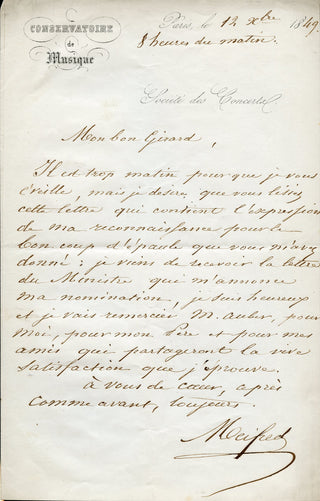 CONSERVATOIRE
de
Musique
Paris, le 12 Xbre 1849
8 heures du matin.
Société des Concerts
Mon bon Girard,
Il est trop matin pour que je vous
éveille, mais je desire que vous lisiez
cette lettre qui contient l'expression
de ma reconnaissance pour le
bon coup d'épaule que vous m'avez
donné : je viens de recevoir la lettre
du Ministre qui m'annonce
ma nomination, je suis heureux
et je vais remercier M. Auber, pour
moi, pour mon Père et pour mes
amis qui partageront la vive
satisfaction que j'éprouve.
à vous de cœur, après
comme avant, toujours.
Meifred